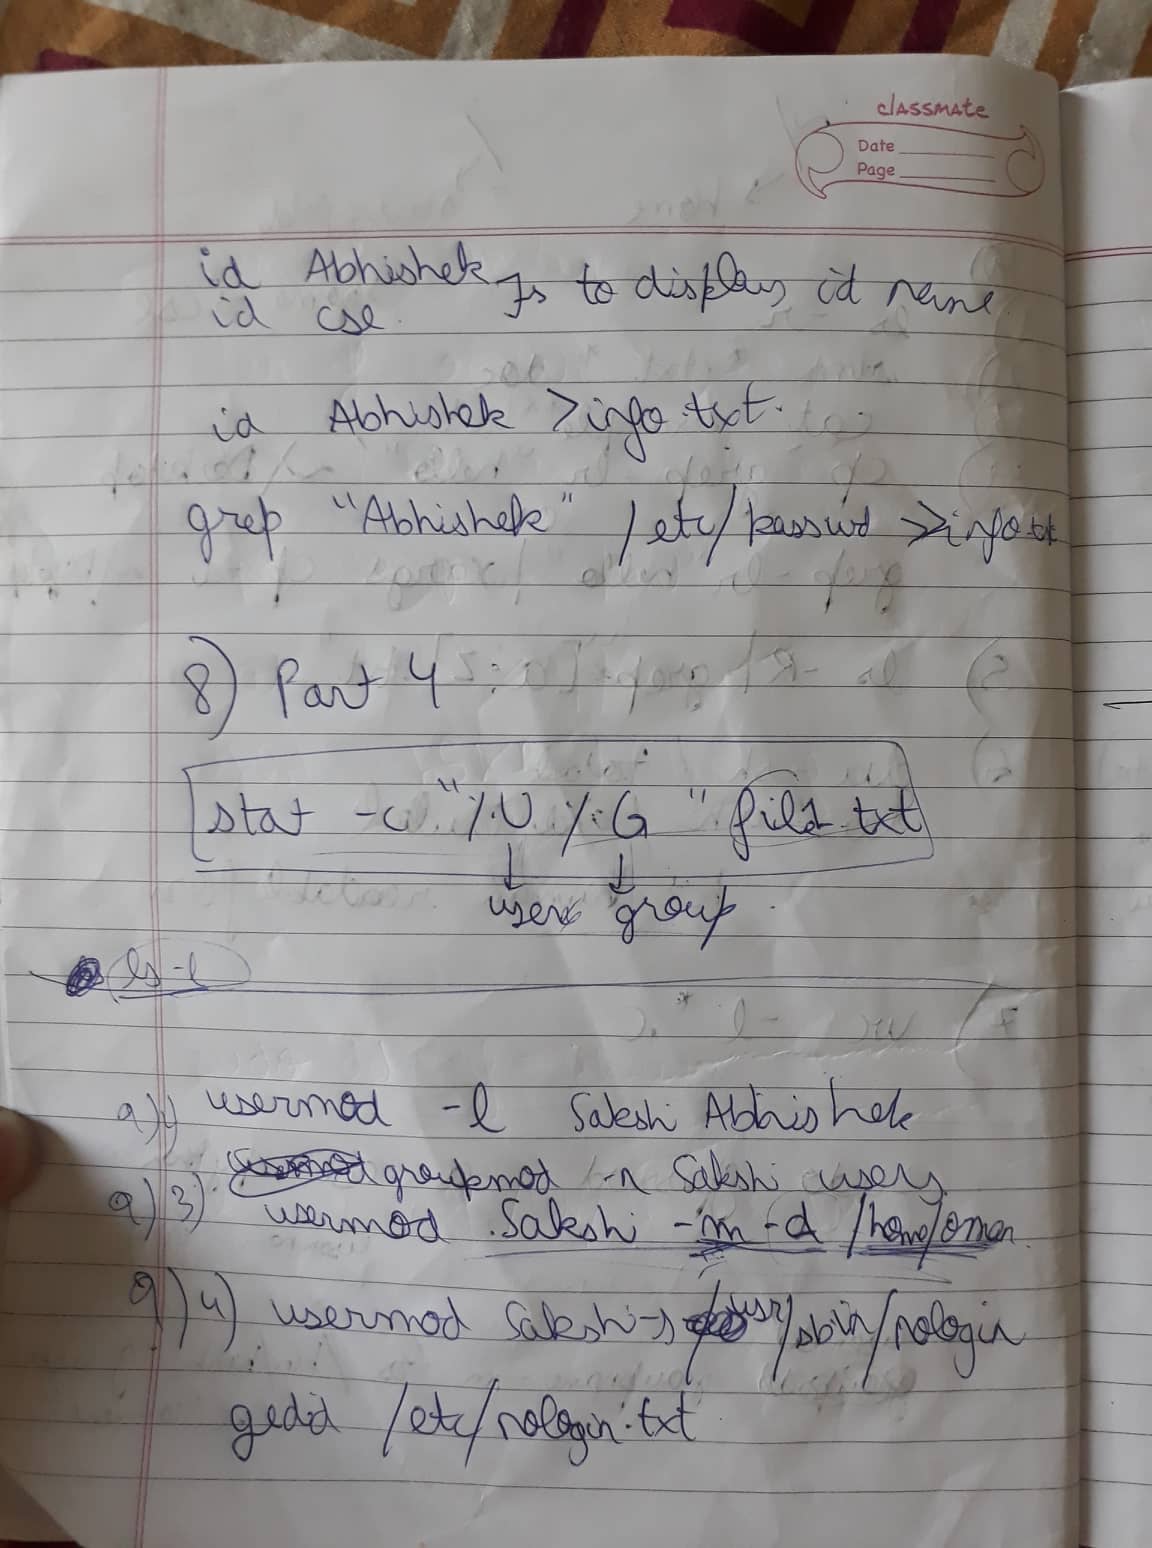 classmate
Date
Page
id Abhishek
id cse
Is to display id name
id Abhishek >info.txt.
grep "Abhishek" /etc/passwd >>info.txt
8) Part 4
stat -c "%U %G " file1.txt
user group
ls -l
9)1) usermod -l Sakshi Abhishek
groupmod -n Sakshi users
9)3) usermod Sakshi -m -d /home/oman
9)4) usermod Sakshi -s /usr/sbin/nologin
gedit /etc/nologin.txt